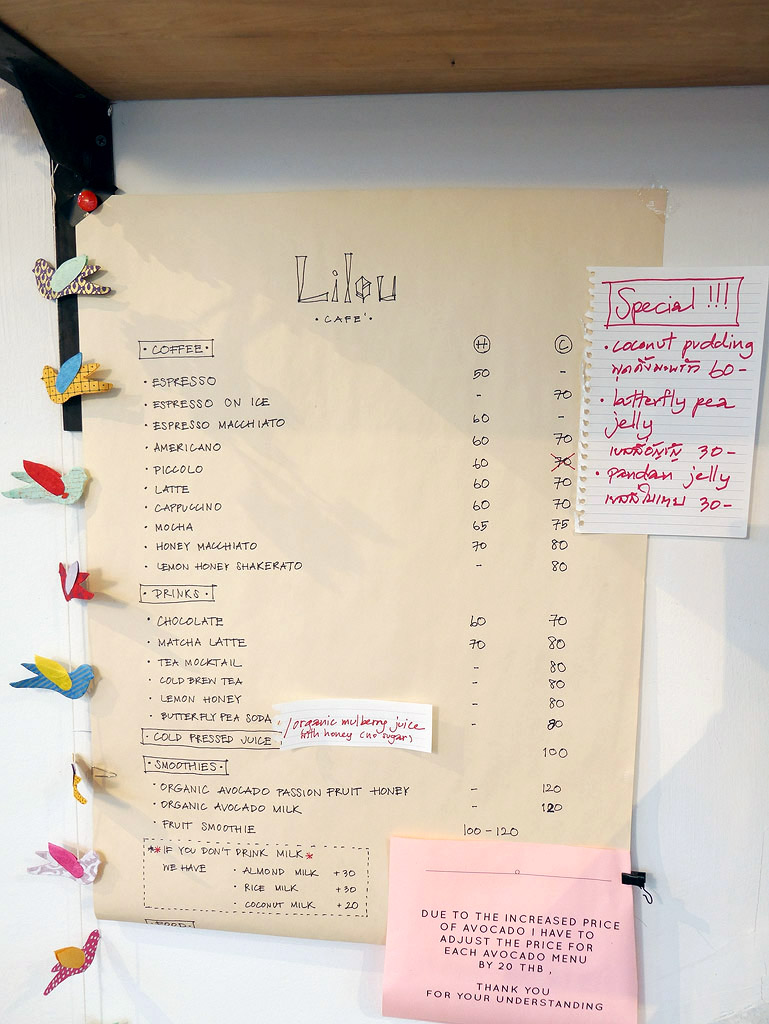 Lilou
· CAFE' ·
· COFFEE · H C
· ESPRESSO 50 -
· ESPRESSO ON ICE - 70
· ESPRESSO MACCHIATO 60 -
· AMERICANO 60 70
· PICCOLO 60 70
· LATTE 60 70
· CAPPUCCINO 60 70
· MOCHA 65 75
· HONEY MACCHIATO 70 80
· LEMON HONEY SHAKERATO - 80
· DRINKS ·
· CHOCOLATE 60 70
· MATCHA LATTE 70 80
· TEA MOCKTAIL - 80
· COLD BREW TEA - 80
· LEMON HONEY - 80
· BUTTERFLY PEA SODA - 80
· COLD PRESSED JUICE 100
/organic mulberry juice
with honey (no sugar)
· SMOOTHIES ·
· ORGANIC AVOCADO PASSION FRUIT HONEY - 120
· ORGANIC AVOCADO MILK - 120
· FRUIT SMOOTHIE 100-120
** IF YOU DON'T DRINK MILK *
WE HAVE · ALMOND MILK +30
· RICE MILK +30
· COCONUT MILK +20
FOOD
Special !!!
· coconut pudding
พุดดิ้งมะพร้าว 60-
· butterfly pea
jelly
เยลลี่อัญชัน 30-
· pandan jelly
เยลลี่ใบเตย 30-
DUE TO THE INCREASED PRICE
OF AVOCADO I HAVE TO
ADJUST THE PRICE FOR
EACH AVOCADO MENU
BY 20 THB ,
THANK YOU
FOR YOUR UNDERSTANDING